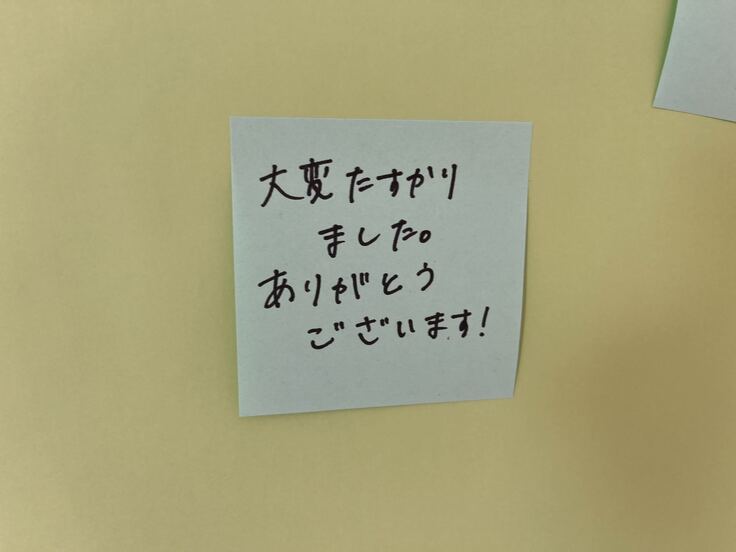 大変たすかり
ました。
ありがとう
ございます!